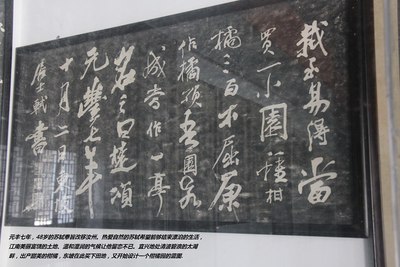 栽至易得當
買一小園種柑
橘三百本屈原
作橘頌吾園若
成當作一亭
名之曰楚頌
元豐七年
十月二日東坡
居士軾書
元丰七年，48岁的苏轼奉旨改移汝州。热爱自然的苏轼希望能够结束漂泊的生活，
江南美丽富饶的土地、温和湿润的气候让他留恋不已。宜兴地处清波碧浪的太湖
畔，出产甜美的柑橘，东坡在此买下田地，又开始设计一个柑橘园的蓝图。